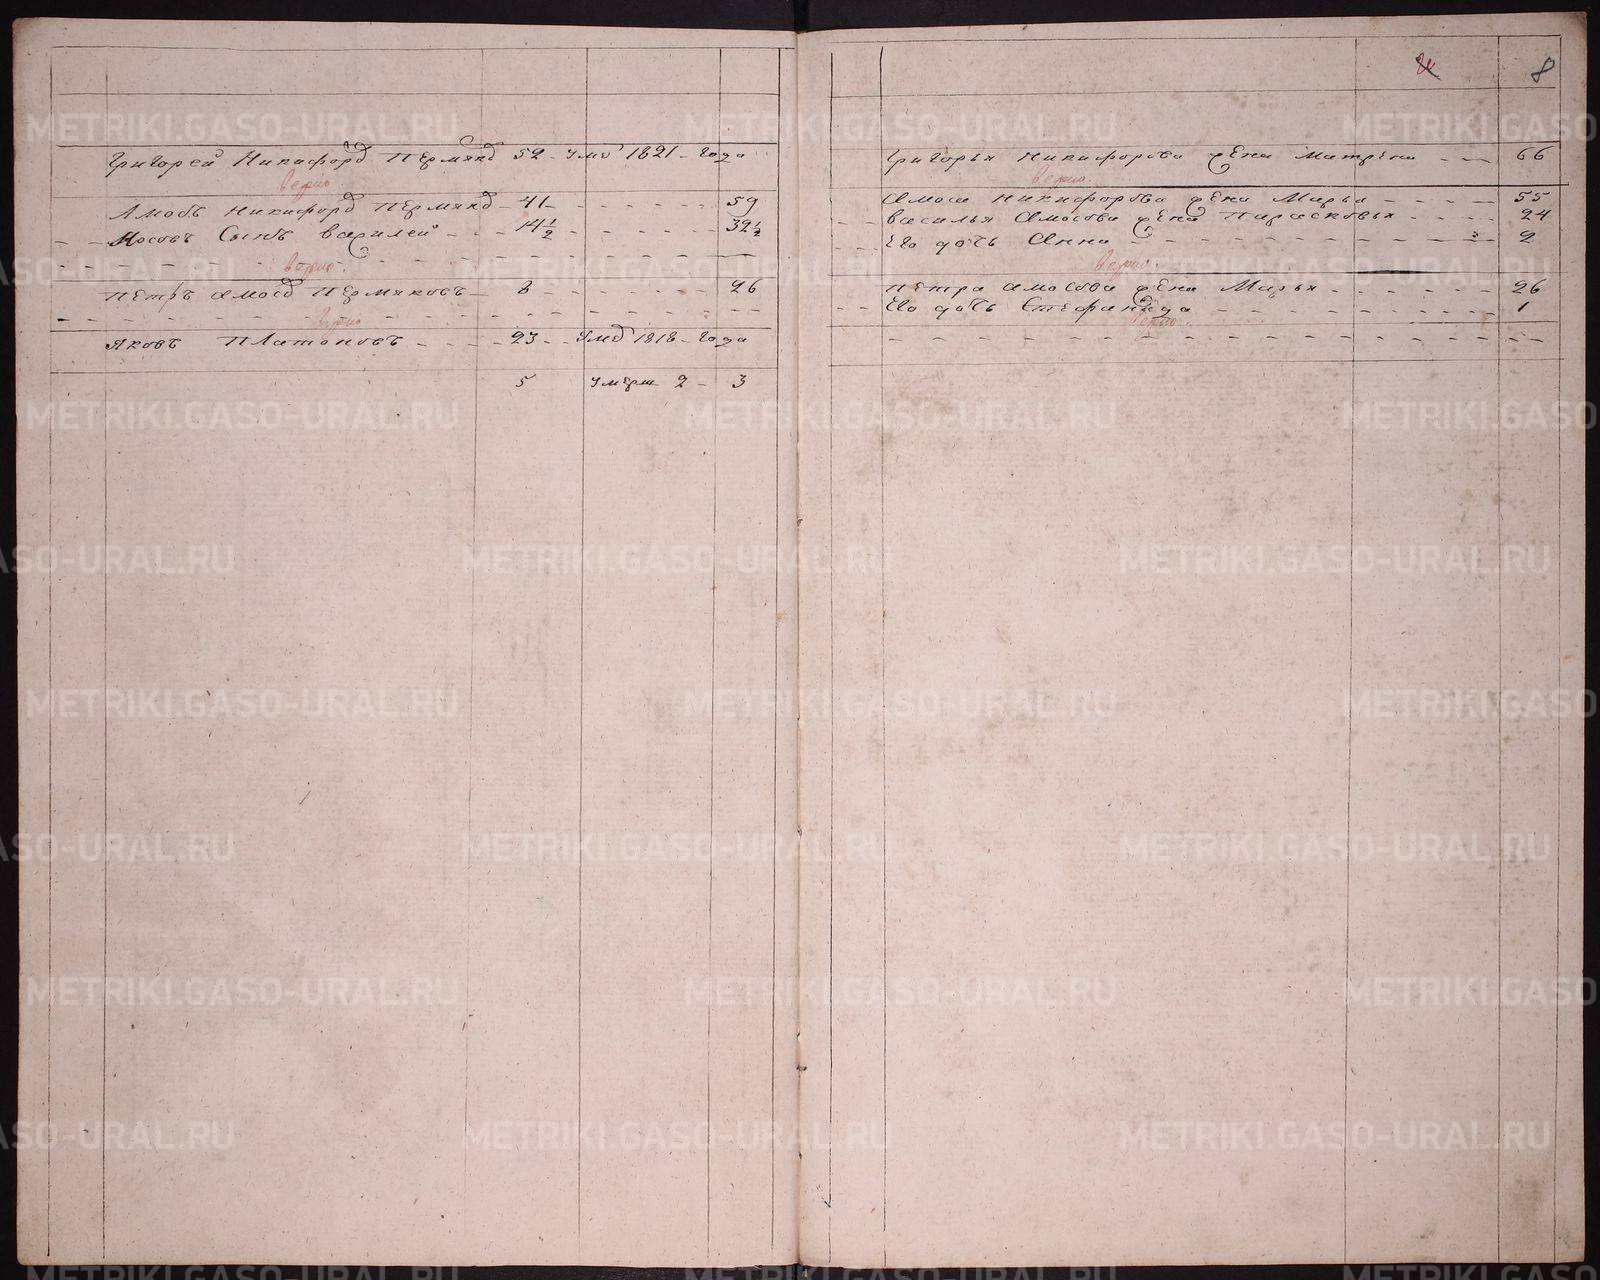 Григорей Никифоровъ Пермяковъ 52 - умѣ 1821 - года
верно
Амосъ Никифоровъ Пермяковъ - 41 - - - - - - 59
Амосовъ Сынъ василей - - 14 1/2 - - - - - - 32 1/2
верно
Петръ Амосовъ Пермяковъ - 8 - - - - - - 26
верно
Яковъ Платоновъ - - - 23 - - умѣ 1818 - года
5 умерш 2 - 3
8
Григорья Никифорова жена Матрена - - - 66
верно
Амоса Никифорова жена Марья - - - - - 55
василья Амосова жена Парасковья - - - - 24
Его дочь Анна - - - - - - - - - - 2
верно
Петра Амосова жена Марья - - - - - - 26
Его дочь Стефанида - - - - - - - - 1
верно
METRIKI.GASO-URAL.RU